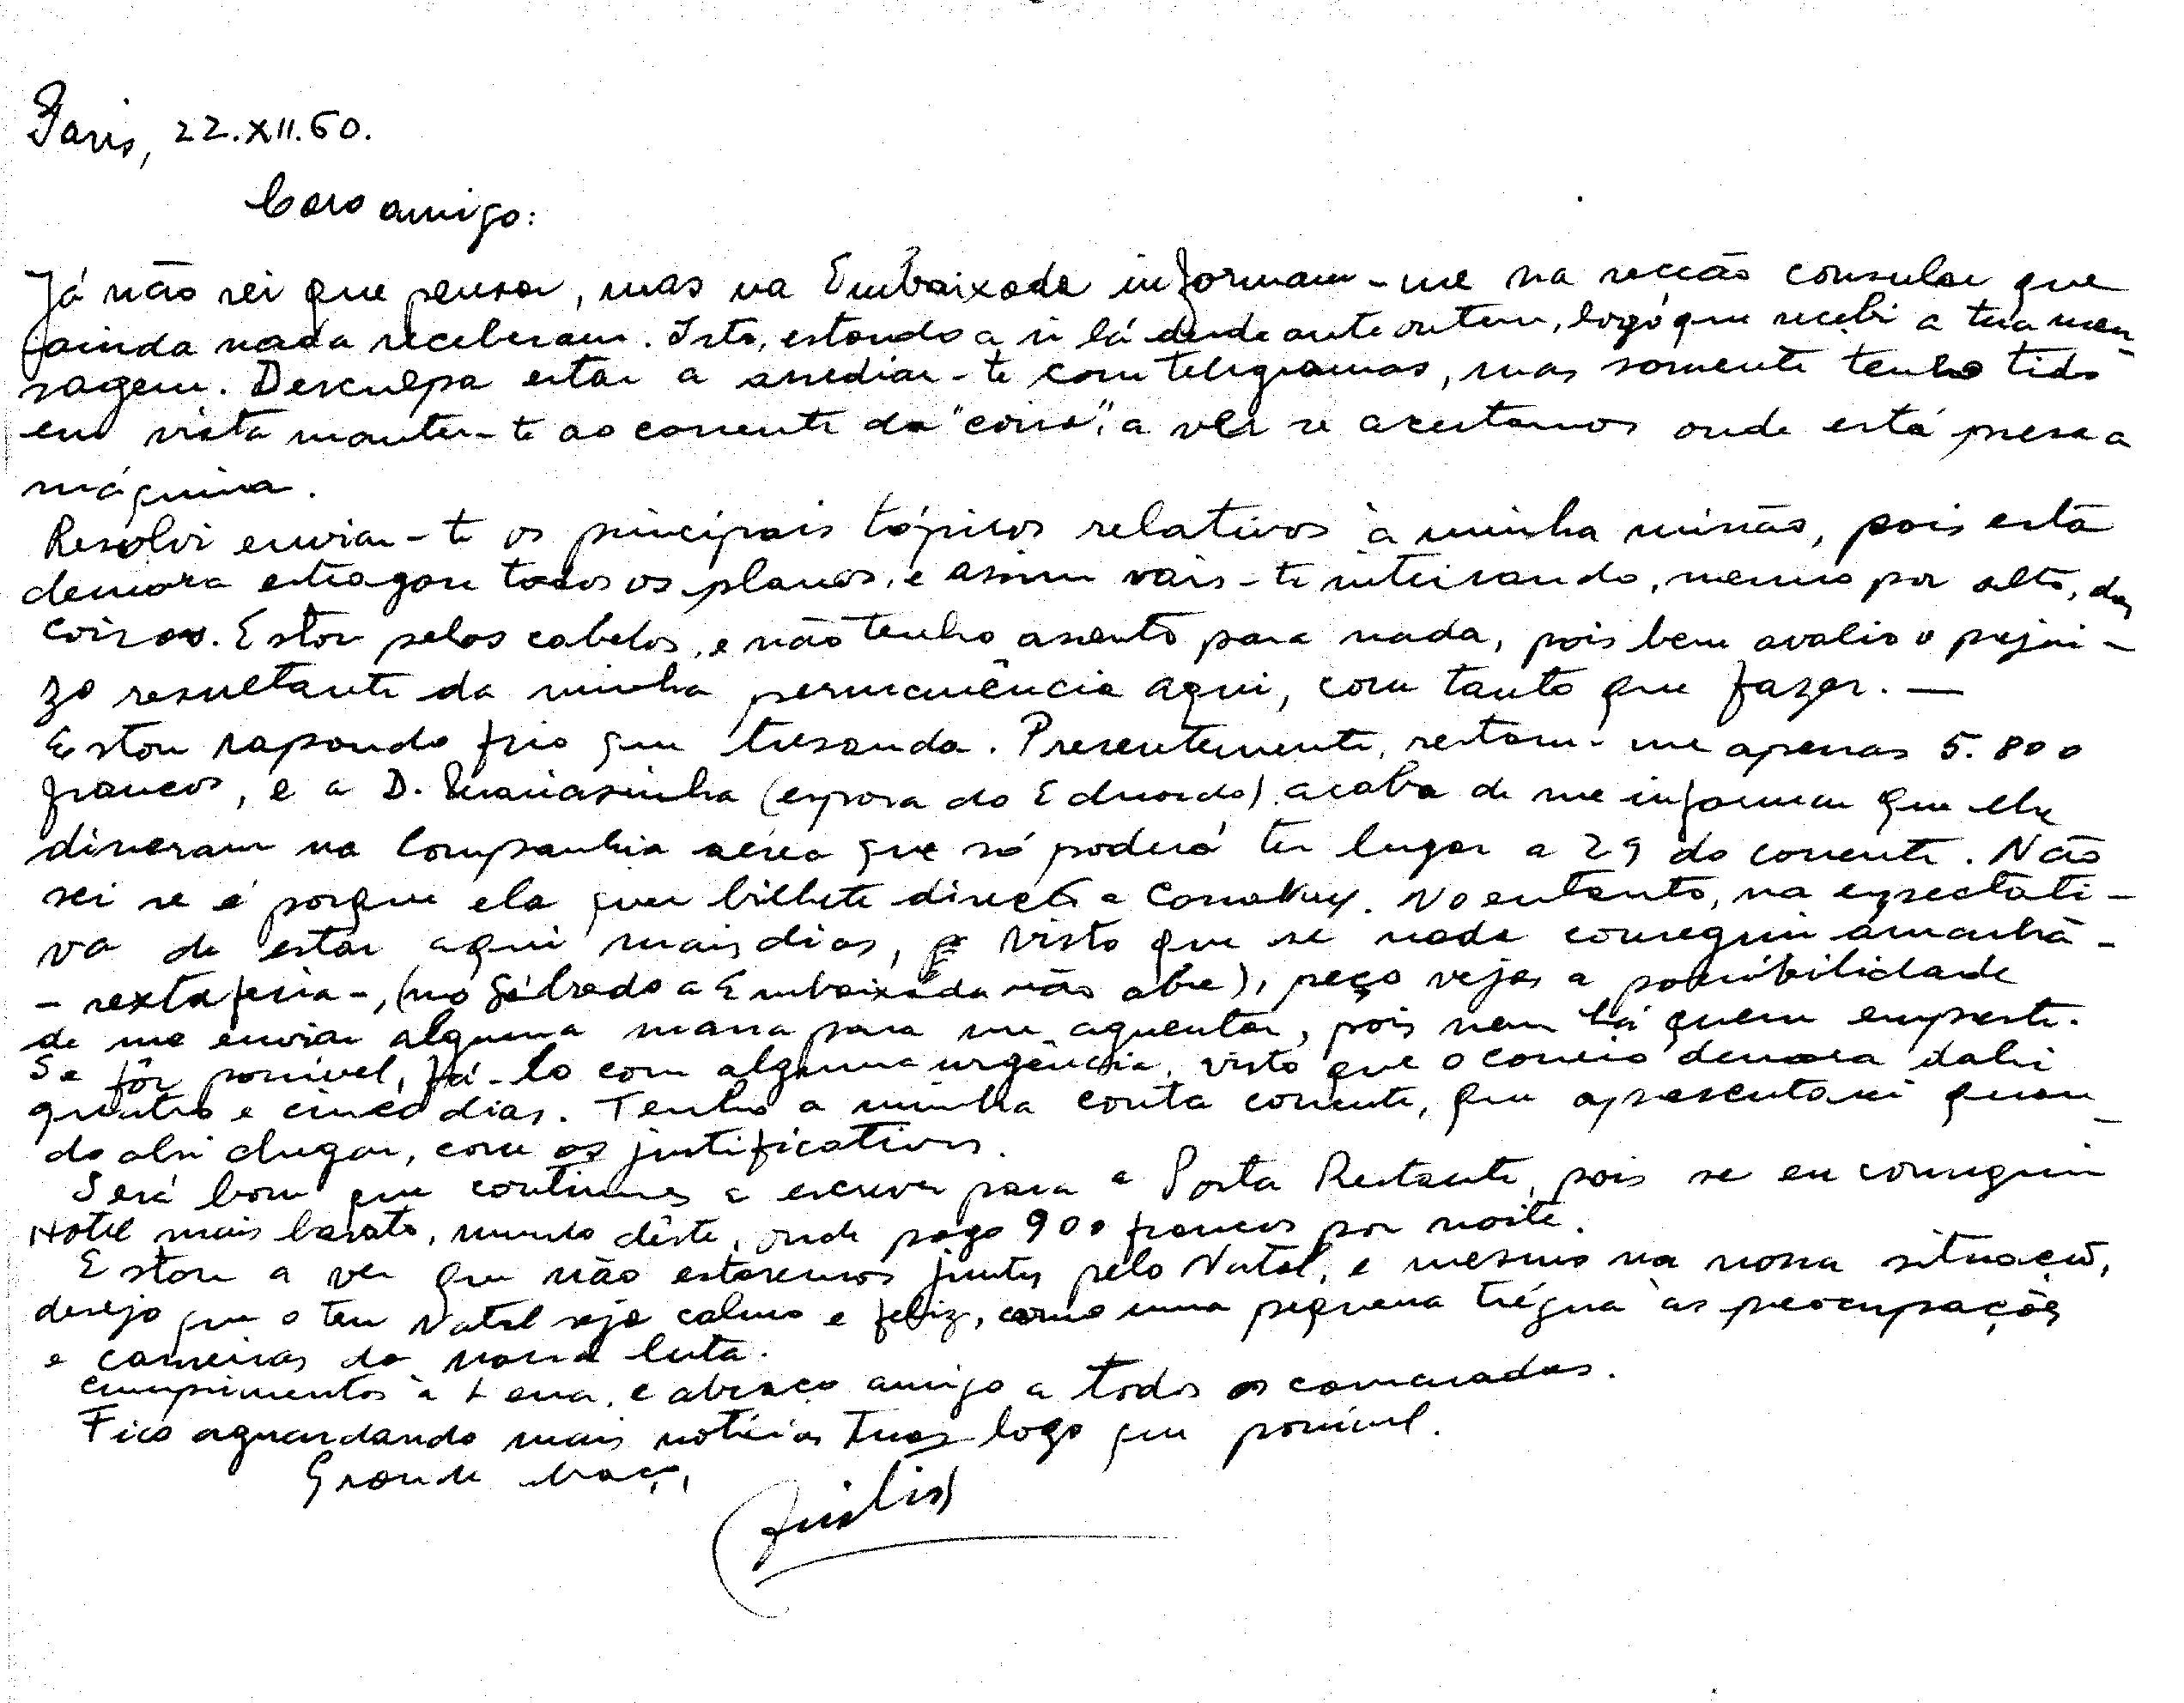 Paris, 22.XII.60.
Caro amigo:
Já não sei que pensar, mas na Embaixada informam-me na secção consular que
ainda nada receberam. Isto, estando a ir lá desde ante ontem, logo que recebi a tua men-
sagem. Desculpa estar a assediar-te com telegramas, mas somente tenho tido
em vista manter-te ao corrente da "coisa", a ver se acertamos onde está presa a
máquina.
Resolvi enviar-te os principais tópicos relativos à minha missão, pois esta
demora estragou todos os planos, e assim vais-te inteirando, mesmo por alto, das
coisas. Estou pelos cabelos, e não tenho assento para nada, pois bem avalio o prejui-
zo resultante da minha permanência aqui, com tanto que fazer. —
Estou rapando frio que tresanda. Presentemente, restam-me apenas 5.800
francos, e a D. (esposa do Eduardo) acaba de me informar que lhe
disseram na Companhia aérea que só poderá ter lugar a 29 do corrente. Não
sei se é porque ela quer bilhete directo a Conakry. No entanto, na expectati-
va de estar aqui mais dias, visto que se nada conseguir àmanhã -
- sexta feira -, (no Sábado a Embaixada não abre), peço vejas a possibilidade
de me enviar alguma massa para me aguentar, pois nem há quem empreste.
Se fôr possível, fá-lo com alguma urgência, visto que o correio demora dahi
quatro e cinco dias. Tenho a minha conta corrente, que apresentarei quan-
do ahi chegar, com os justificativos.
Será bom que continues a escrever para a Posta Restante, pois se eu conseguir
Hotel mais barato, mudo dêste, onde pago 900 francos por noite.
Estou a ver que não estaremos juntos pelo Natal, e mesmo na nossa situação,
desejo que o teu Natal seja calmo e feliz, como uma pequena trégua às preocupações
e canseiras da nossa luta.
Cumprimentos à Lena, e abraço amigo a todos os camaradas.
Fico aguardando mais notícias tuas logo que possível.
Grande abraço,